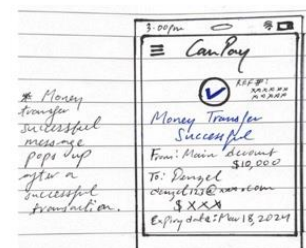 * Money
transfer
successful
message
pops up
after a
successful
transaction.
3:00pm
CanPay
REF#:
xxxxxx
xxxxxx
Money Transfer
Successful
From: Main Account
$10,000
To: Denzel
denzel123@xxx.com
$xxxx
Expiry date: Mar 18, 2024